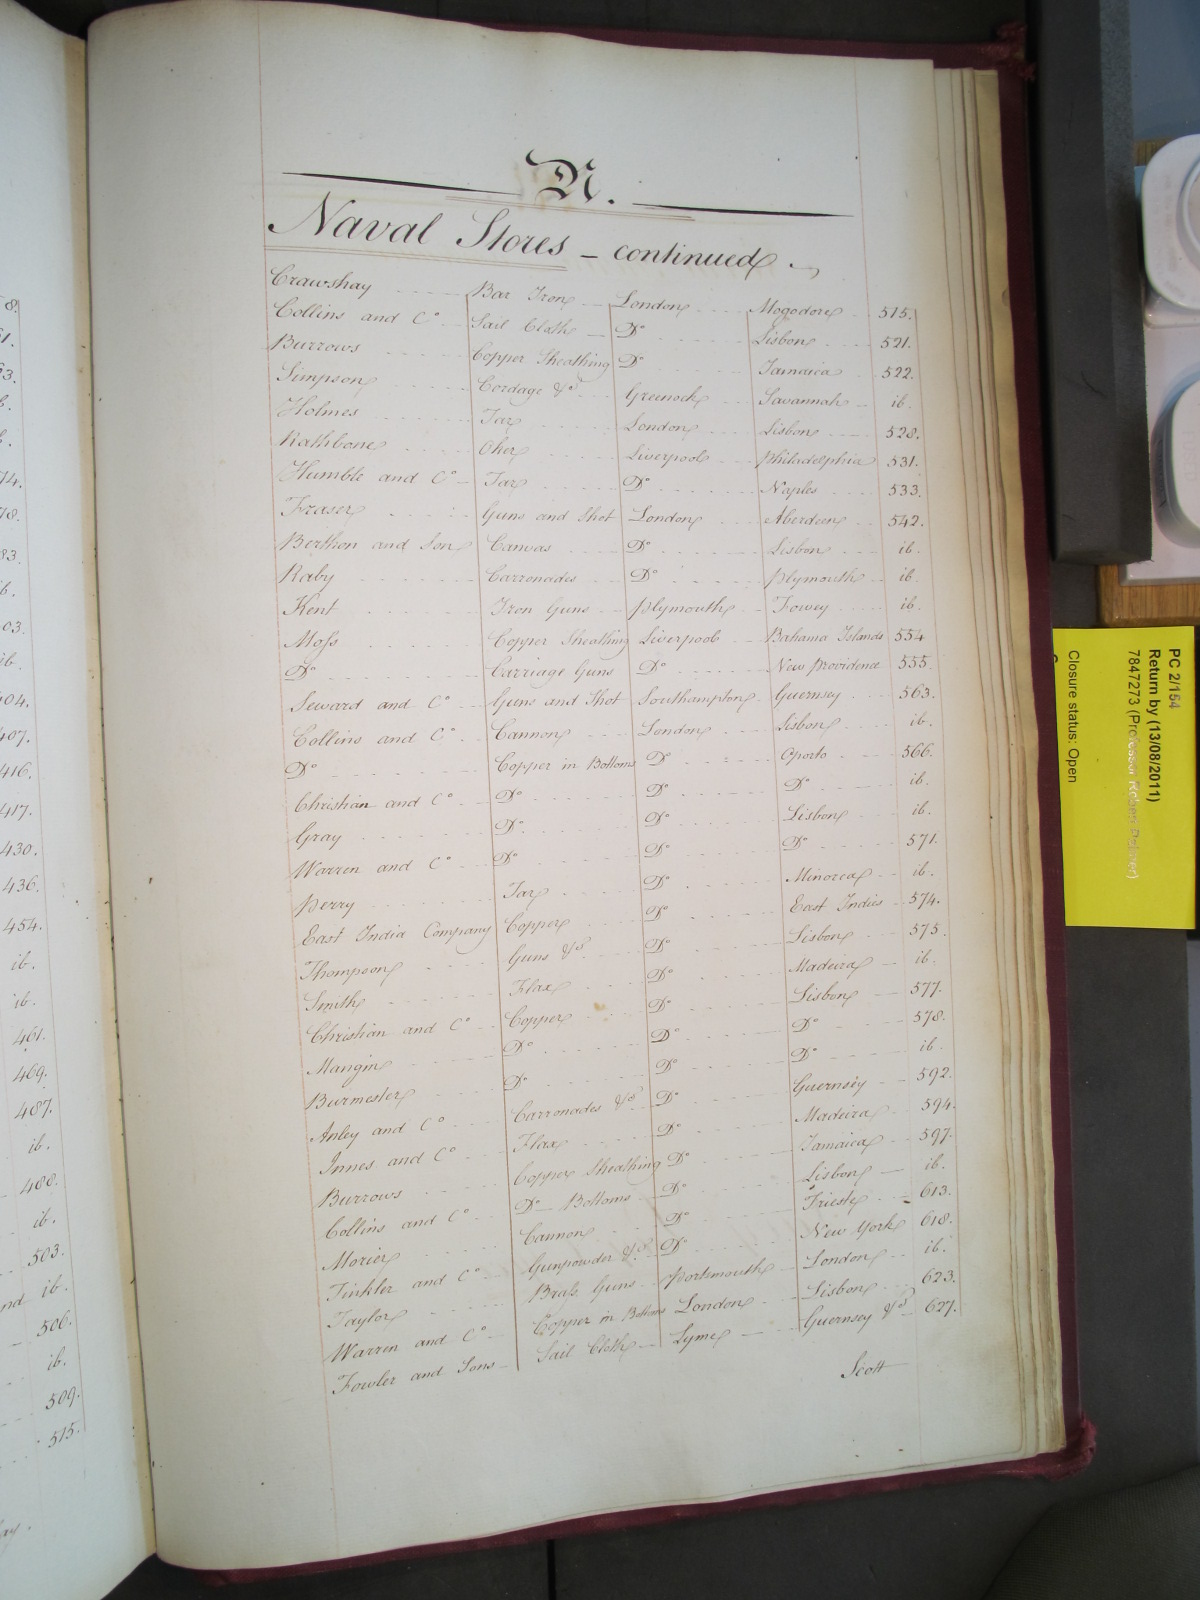 N.
Naval Stores - continued
Crawshay Bar Iron London Mogodore 515.
Collins and Co Sail Cloth Do Lisbon 521.
Burrows Copper Sheathing Do Jamaica 522.
Simpson Cordage &c Greenock Savannah ib.
Holmes Tar London Lisbon 528.
Rathbone Oker Liverpool Philadelphia 531.
Humble and Co Tar Do Naples 533.
Fraser Guns and Shot London Aberdeen 542.
Berthon and Son Canvas Do Lisbon ib.
Raby Carronades Do Plymouth ib.
Kent Iron Guns Plymouth Fowey ib.
Moss Copper Sheathing Liverpool Bahama Islands 554
Do Carriage Guns Do New Providence 555.
Seward and Co Guns and Shot Southampton Guernsey 563.
Collins and Co Cannon London Lisbon ib.
Do Copper in Bottoms Do Oporto 566.
Christian and Co Do Do Do ib.
Gray Do Do Lisbon ib.
Warren and Co Do Do Do 571.
Perry Tar Do Minorca ib.
East India Company Copper Do East Indies 574.
Thompson Guns &c Do Lisbon 575.
Smith Flax Do Madeira ib.
Christian and Co Copper Do Lisbon 577.
Mangin Do Do Do 578.
Burmester Do Do Do ib.
Anley and Co Carronades &c Do Guernsey 592.
Innes and Co Flax Do Madeira 594.
Burrows Copper Sheathing Do Jamaica 597.
Collins and Co Do Bottoms Do Lisbon ib.
Morier Cannon Do Trieste 613.
Tinkler and Co Gunpowder &c Do New York 618.
Taylor Brass Guns Portsmouth London ib.
Warren and Co Copper in Bottoms London Lisbon 623.
Fowler and Sons Sail Cloth Lyme Guernsey &c 627.
Scott
407.
416.
417.
430.
436.
454.
ib.
ib.
461.
469.
487.
ib.
488.
ib.
503.
ib.
506.
ib.
509.
515.
PC 2/154
Return by (13/08/2011)
7847273 (Professor Robert
Closure status: Open